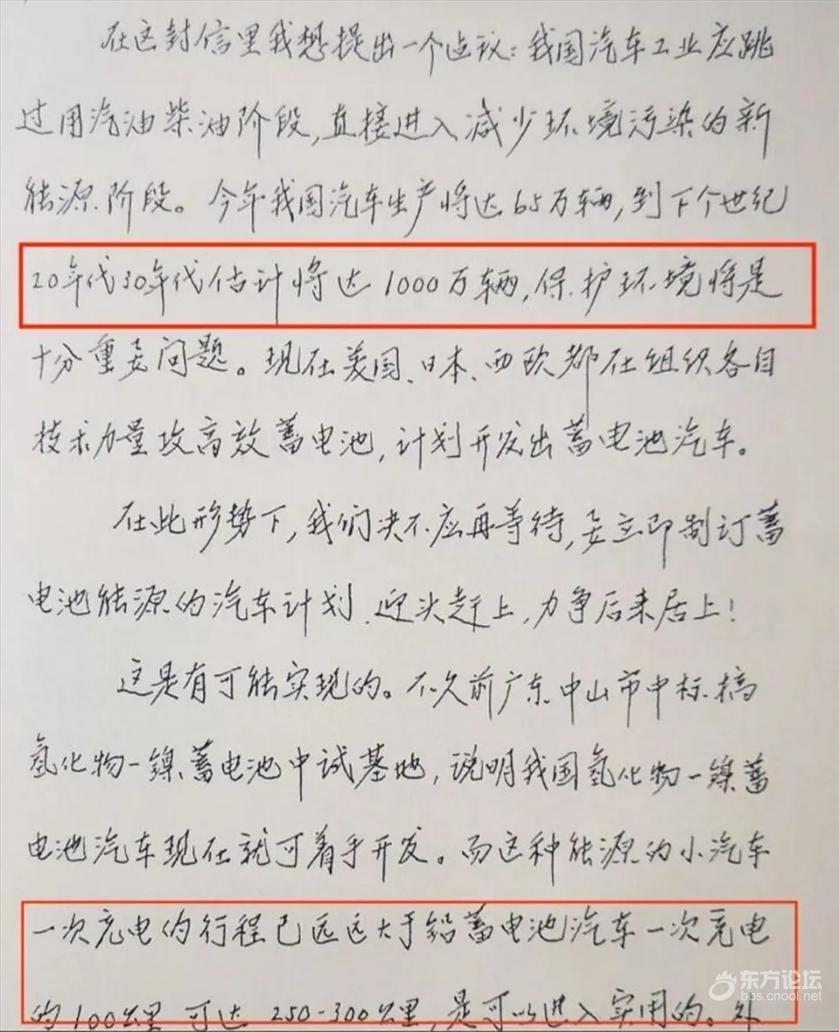 在这封信里我想提出一个建议：我国汽车工业应跳
过用汽油柴油阶段，直接进入减少环境污染的新
能源阶段。今年我国汽车生产将达65万辆，到下个世纪
20年代30年代估计将达1000万辆，保护环境将是
十分重要问题。现在美国、日本、西欧都在组织各自
技术力量攻高效蓄电池，计划开发出蓄电池汽车。
在此形势下，我们决不应再等待，要立即制订蓄
电池能源的汽车计划，迎头赶上，力争后来居上！
这是有可能实现的。不久前广东中山市中标搞
氢化物—镍蓄电池中试基地，说明我国氢化物—镍蓄
电池汽车现在就可着手开发。而这种能源的小汽车
一次充电的行程已远远大于铅蓄电池汽车一次充电
的100公里，可达250-300公里，是可以进入实用的。处
东方论坛
bbs.cnool.net